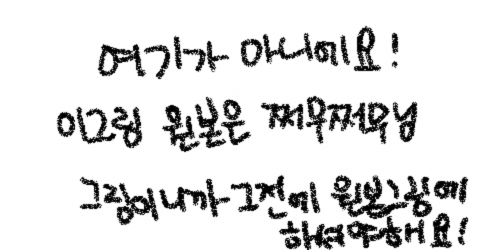 여기가 아니에요!
이그림 원본은 쩌우쩌우님
그림이니까 그전에 원본그림에
하셔야해요!